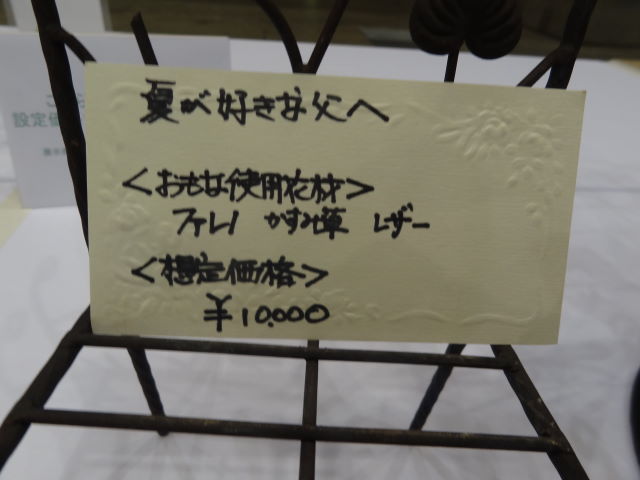 夏が好きな父へ
<おもな使用花材>
かすみ草 レザー
<想定価格>
¥10,000
設定価